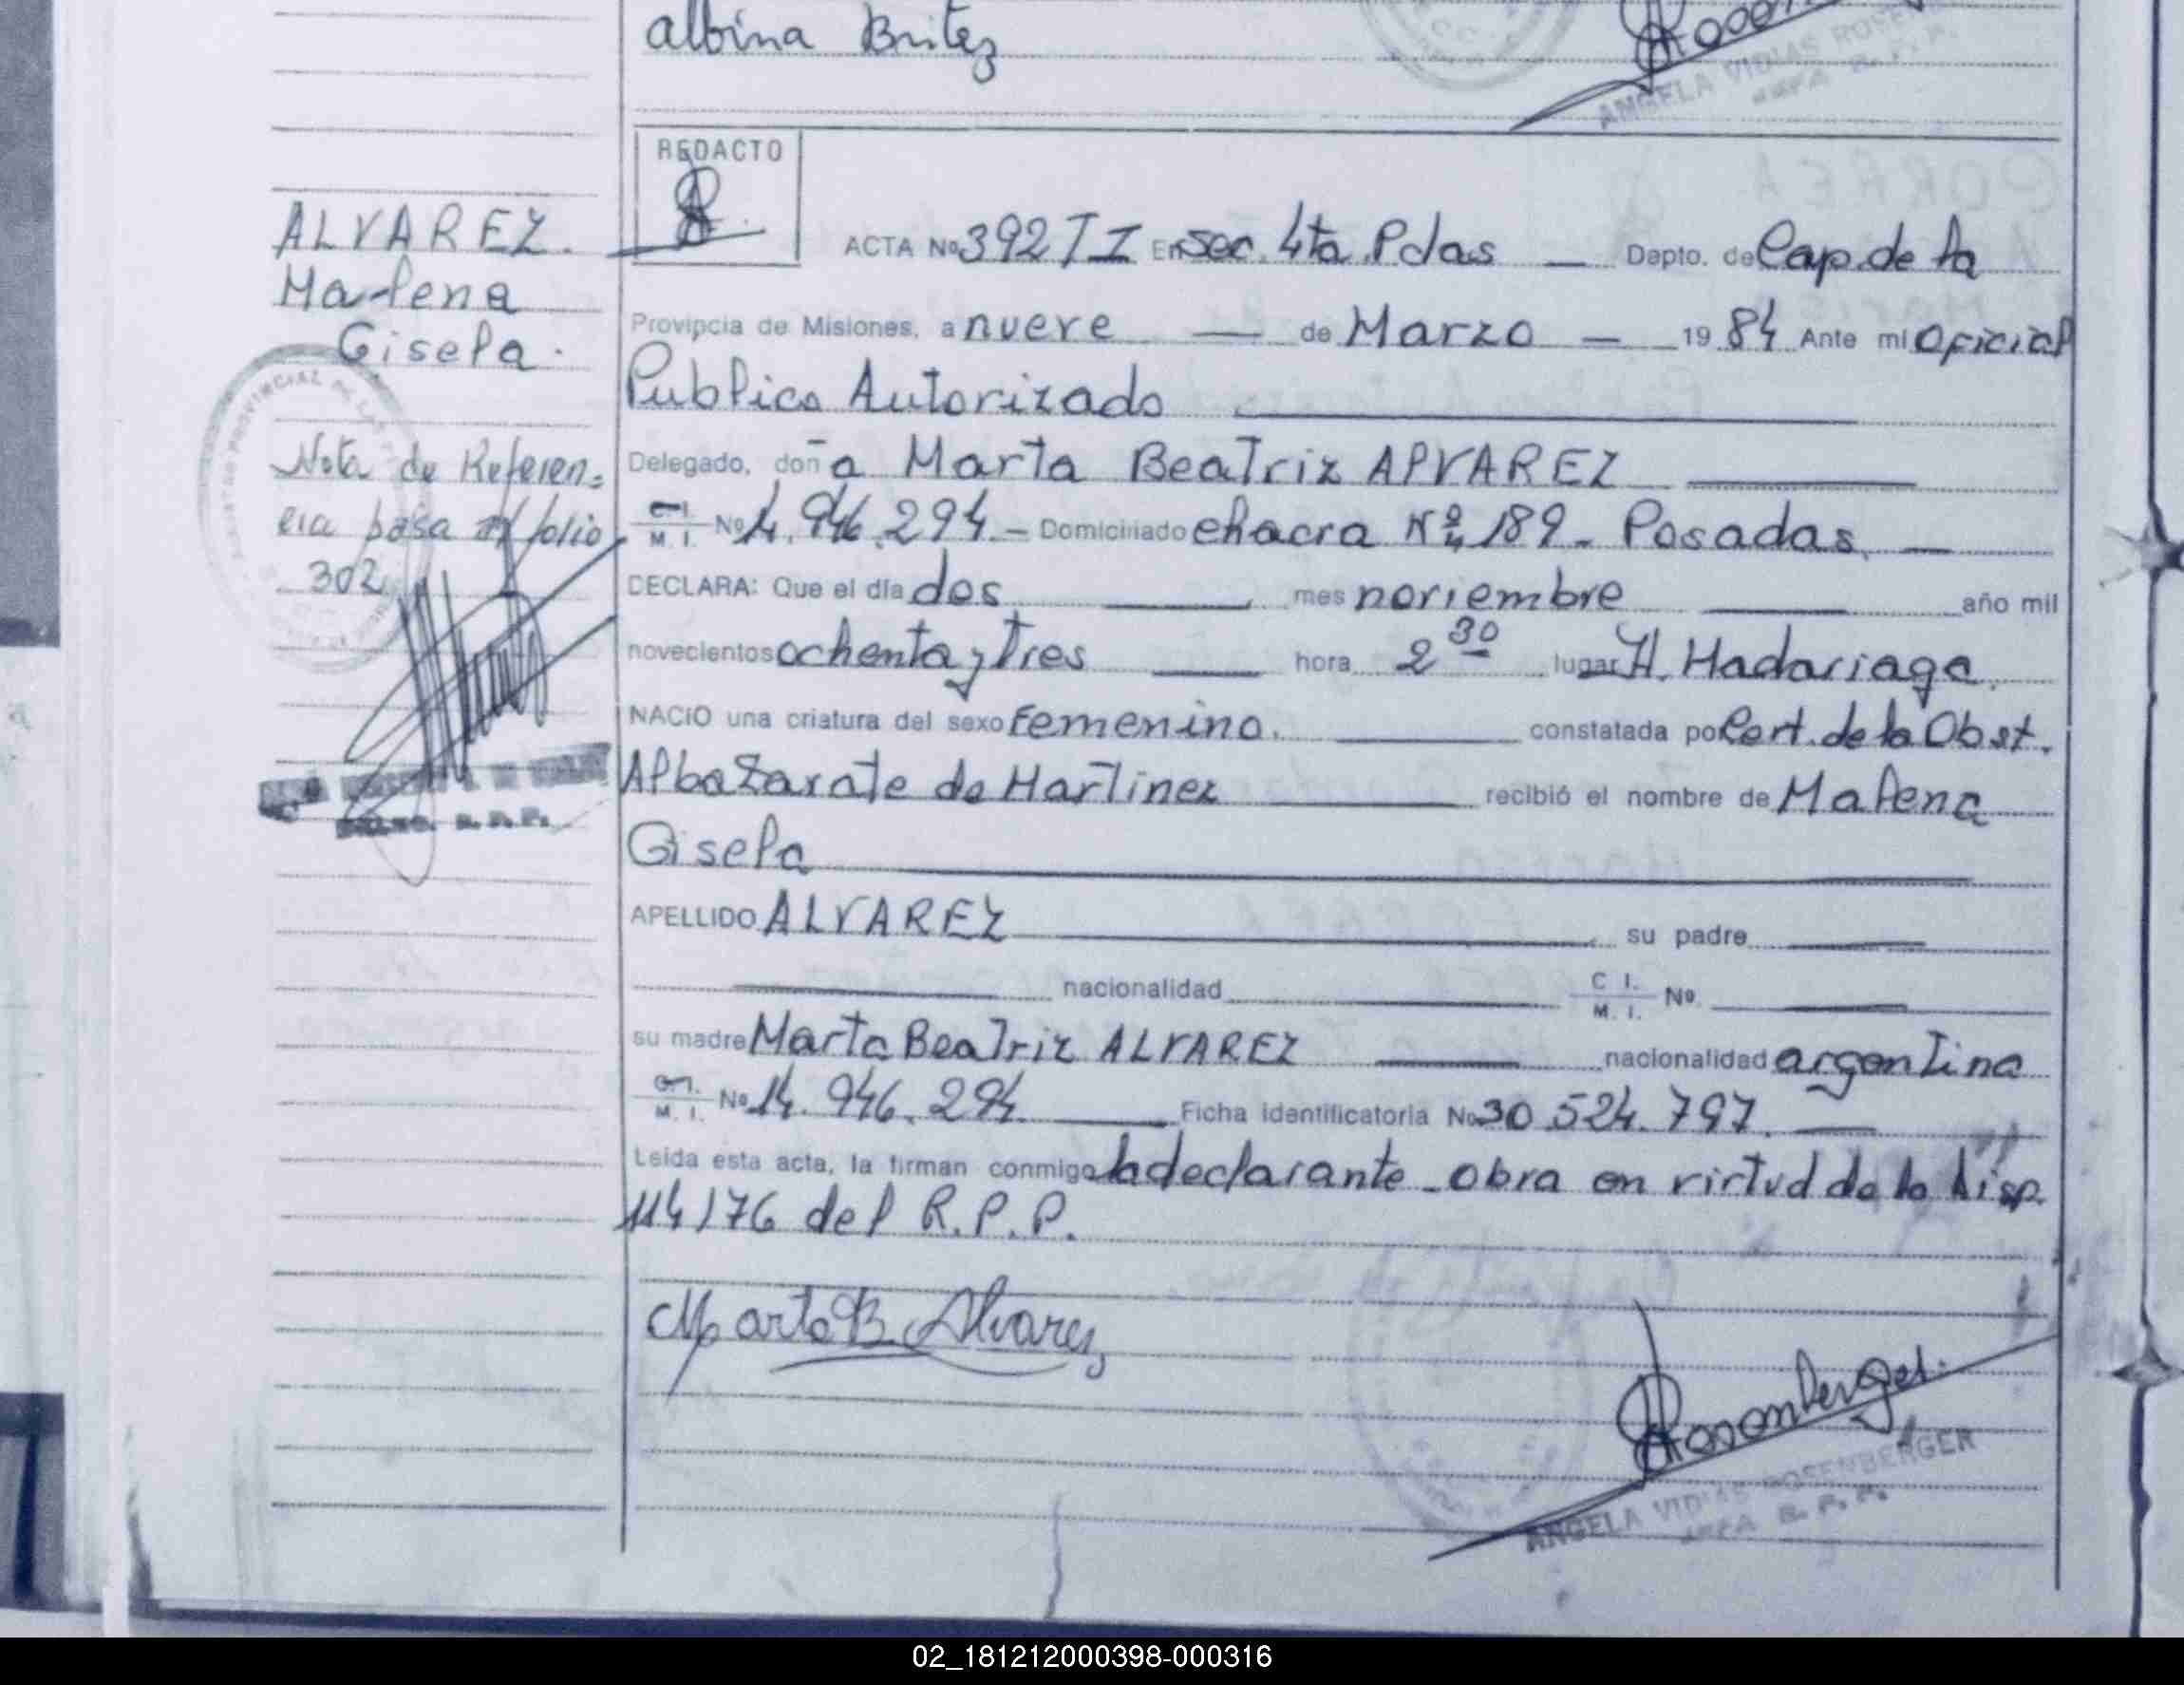 Albina Britez
ANGELA VIDIAS ROSENBERGER
JEFA R. P. P.
REDACTO
ALVAREZ.
Malena
Gisela.
Nota de Referen=
cia pasa folio
302
ACTA Nº 392 T I En sec. 4ta. Pdas — Depto. de Cap. de la
Provincia de Misiones, a nueve — de Marzo — 19 84 Ante mi Oficial
Publico Autorizado
Delegado, don̄a Marta Beatriz ALVAREZ
C. I. M. I. Nº 14.946.294.- Domiciliado chacra Nº 189 - Posadas. —
DECLARA: Que el día dos mes noviembre año mil
novecientos ochenta y Tres hora 2 30 lugar H. Madariaga.
NACIO una criatura del sexo Femenino. constatada por Cert. de la Obst.
Alba Zarate de Martinez recibió el nombre de Malena
Gisela
APELLIDO ALVAREZ su padre
nacionalidad C I. M. I. Nº
su madre Marta Beatriz ALVAREZ nacionalidad argentina
C. I. M. I. Nº 14.946.294. Ficha identificatoria Nº 30.524.797. —
Leída esta acta, la firman conmigo la declarante - obra en virtud de la Disp.
114/76 del R.P.P.
Marta B. Alvarez
Rosenberger.
ANGELA VIDIAS ROSENBERGER
JEFA R. P. P.
02_181212000398-000316